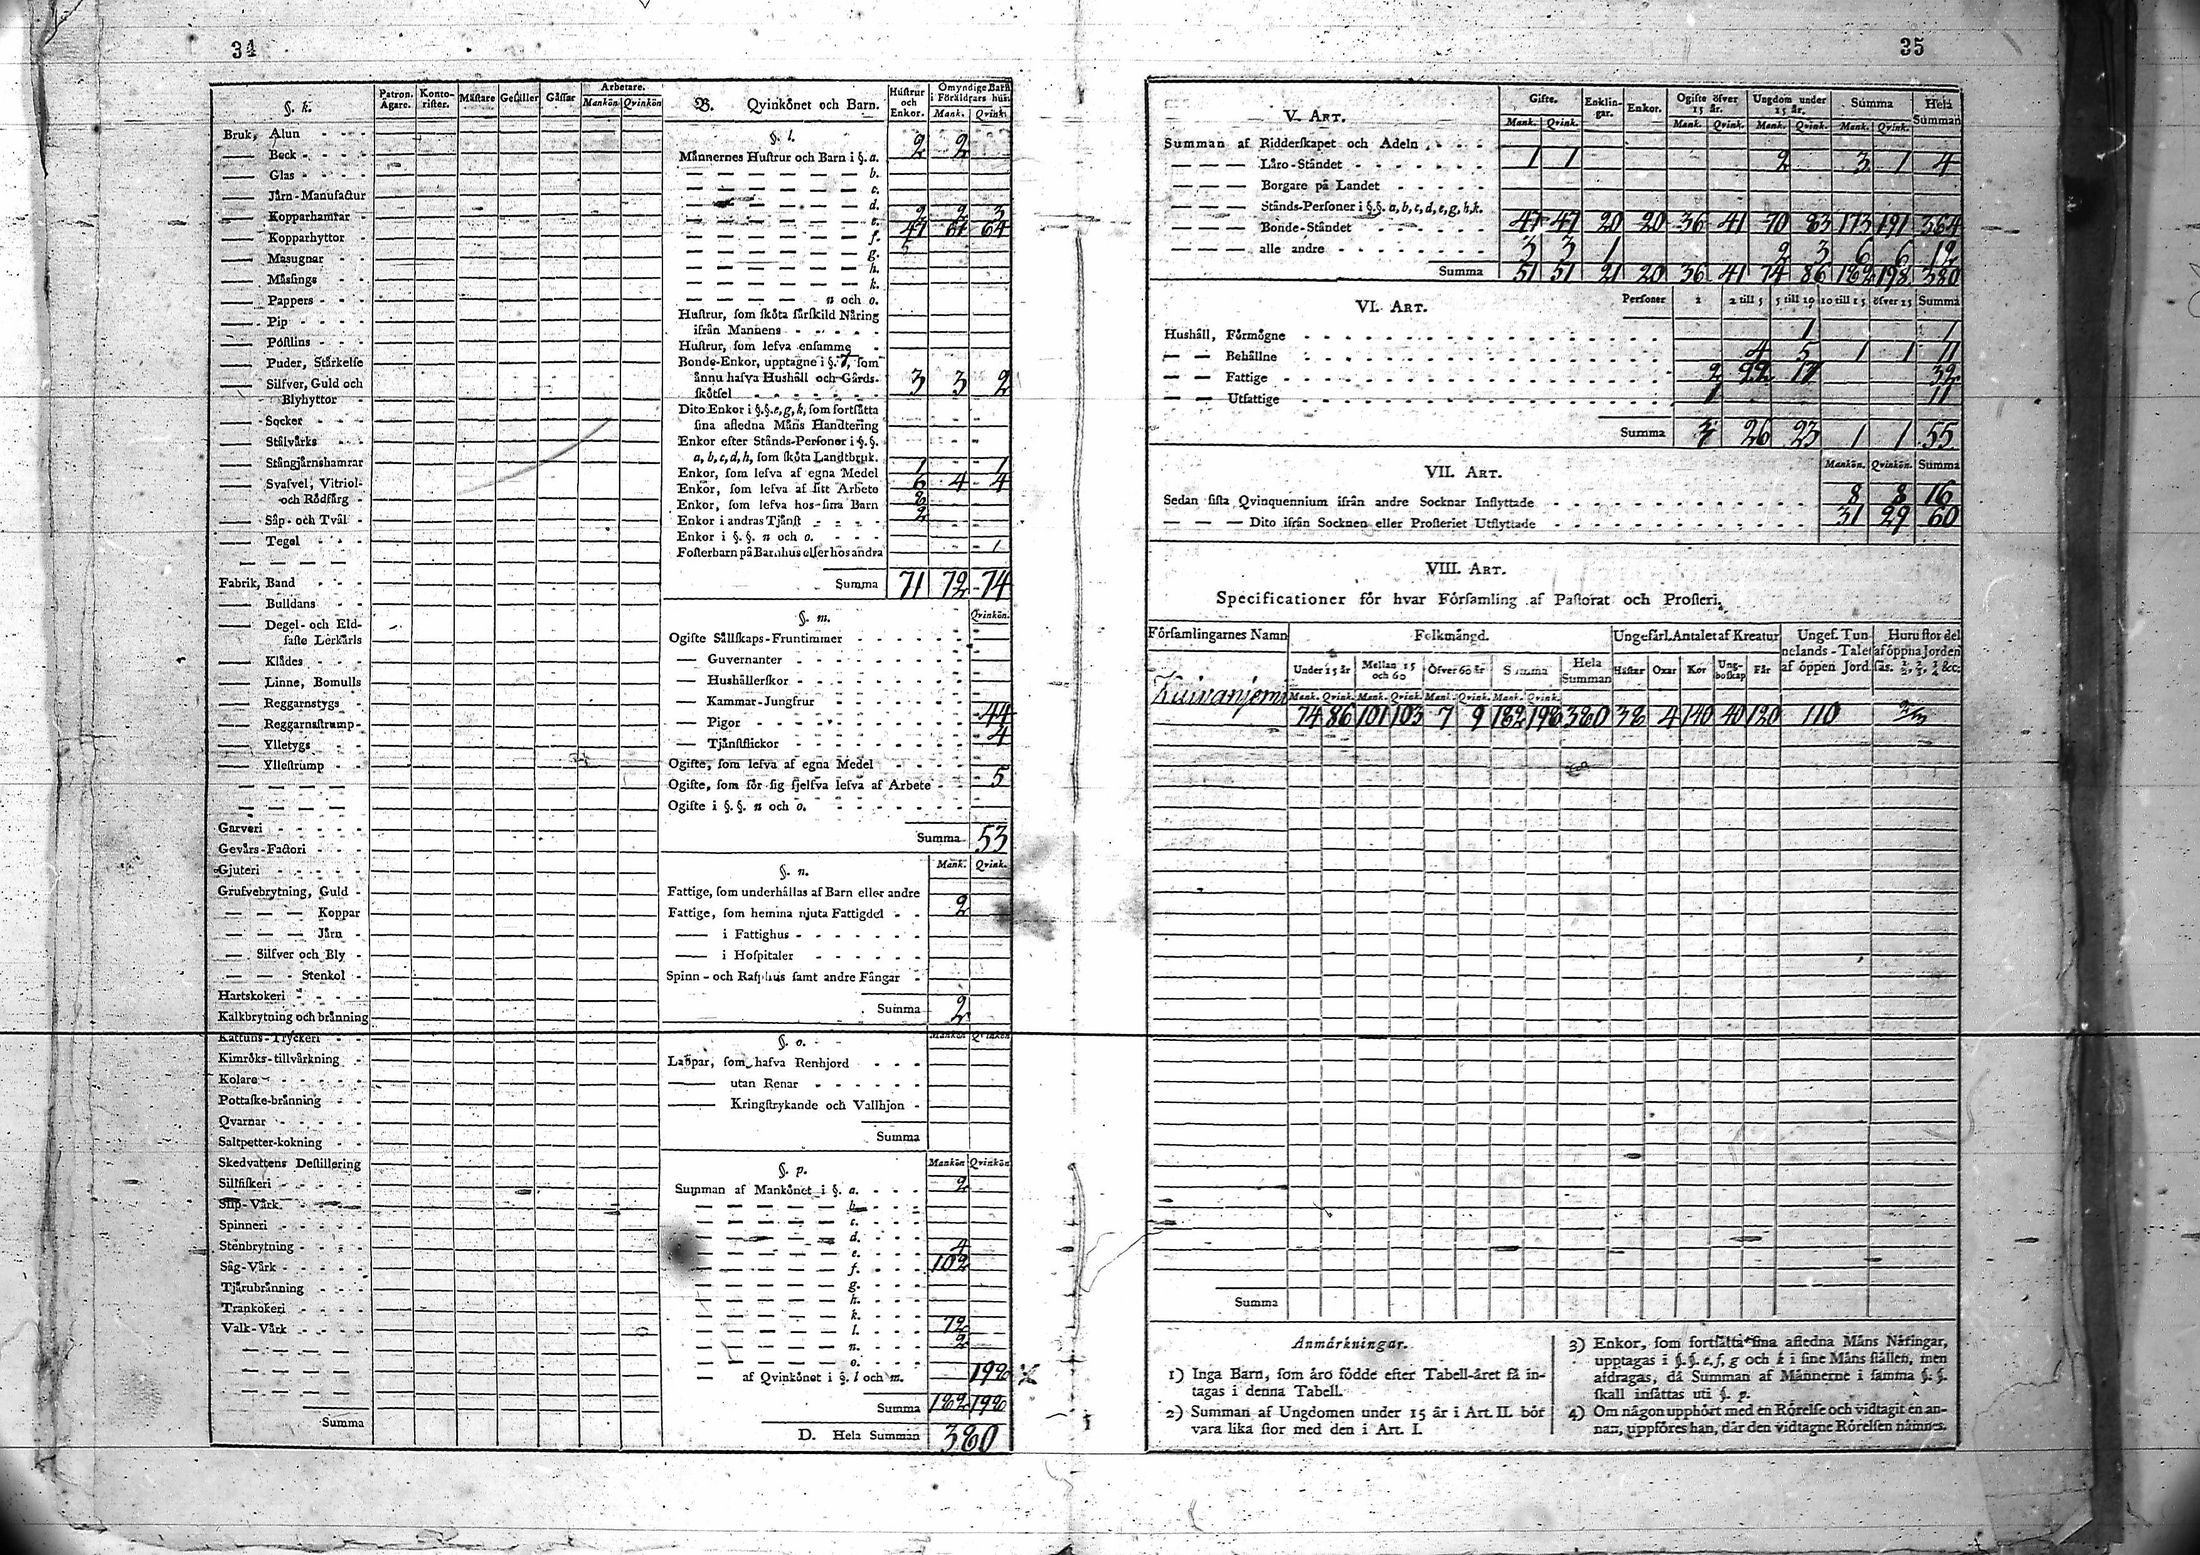 34
§. k.
Patron. Ägare. Konto- rister. Mästare Gesäller Gåssar Arbetare. Mankön Qvinkön
Bruk, Alun
— Beck
— Glas
— Järn-Manufactur
— Kopparhamrar
— Kopparhyttor
— Masugnar
— Mässings
— Pappers
— Pip
— Postlins
— Puder, Stärkelse
— Silfver, Guld och
Blyhyttor
— Socker
— Stålvärks
— Stångjärnshamrar
— Svafvel, Vitriol-
och Rödfärg
— Såp- och Tvål
— Tegel
Fabrik, Band
— Bulldans
— Degel- och Eld-
faste Lerkärls
— Klädes
— Linne, Bomulls
— Reggarnstygs
— Reggarnsstrump
— Ylletygs
— Yllestrump
Garveri
Gevärs-Factori
Gjuteri
Grufvebrytning, Guld
— — — Koppar
— — — Järn
— Silfver och Bly
— — — Stenkol
Hartskokeri
Kalkbrytning och bränning
Kattuns-Tryckeri
Kimröks-tillvärkning
Kolare
Pottaske-bränning
Qvarnar
Saltpetter-kokning
Skedvattens Destillering
Sillfiskeri
Slip-Värk
Spinneri
Stenbrytning
Såg-Värk
Tjärubränning
Trankokeri
Valk-Värk
Summa
B. Qvinkönet och Barn. Hustrur och Enkor. Omyndige Barn i Föräldrars hus. Mank. Qvink.
§. l.
Männernes Hustrur och Barn i §. a. 2 2
— — — — — — b.
— — — — — — c.
— — — — — — d.
— — — — — — e. 2 2 3
— — — — — — f. 47 61 64
— — — — — — g. 5
— — — — — — h.
— — — — — — k.
— — — — — n och o.
Hustrur, som sköta särskild Näring
ifrån Mannens
Hustrur, som lefva ensamme
Bonde-Enkor, upptagne i §. f, som
ännu hafva Hushåll och Gårds-
skötsel 3 3 2
Dito Enkor i §.§. e, g, k, som fortsätta
sina afledna Mäns Handtering
Enkor efter Stånds-Personer i §.§.
a, b, c, d, h, som sköta Landtbruk.
Enkor, som lefva af egna Medel 1 1
Enkor, som lefva af sitt Arbete 6 4 4
Enkor, som lefva hos sina Barn 8
Enkor i andras Tjänst 2
Enkor i §. §. n och o.
Fosterbarn på Barnhus eller hos andra 1
Summa 71 72 74
§. m. Qvinkön.
Ogifte Sällskaps-Fruntimmer
— Guvernanter
— Hushållerskor
— Kammar-Jungfrur
— Pigor 44
— Tjänstflickor 4
Ogifte, som lefva af egna Medel
Ogifte, som för sig sjelfva lefva af Arbete 5
Ogifte i §. §. n och o.
Summa 53
§. n. Mank. Qvink.
Fattige, som underhållas af Barn eller andre
Fattige, som hemma njuta Fattigdel 2
— i Fattighus
— i Hospitaler
Spinn- och Rasphus samt andre Fångar
Summa 2
§. o. Mankön Qvinkön
Lappar, som hafva Renhjord
— utan Renar
— Kringstrykande och Vallhjon
Summa
§. p. Mankön Qvinkön
Summan af Mankönet i §. a. 2
— — — — — b.
— — — — — c.
— — — — — d.
— — — — — e. 4
— — — — — f. 102
— — — — — g.
— — — — — h.
— — — — — k.
— — — — — l. 72
— — — — — n. 2
— — — — — o.
— af Qvinkönet i §. l och m. 198
Summa 182 198
D. Hela Summan 380
35
V. Art. Gifte. Mank. Qvink. Enklin- gar. Enkor. Ogifte öfver 15 år. Mank. Qvink. Ungdom under 15 år. Mank. Qvink. Summa Mank. Qvink. Hela Summan
Summan af Ridderskapet och Adeln
— — — Läro-Ståndet 1 1 2 3 1 4
— — — Borgare på Landet
— — — Stånds-Personer i §.§. a, b, c, d, e, g, h, k.
— — — Bonde-Ståndet 47 47 20 20 36 41 70 83 173 191 364
— — — alle andre 3 3 1 2 3 6 6 12
Summa 51 51 21 20 36 41 74 86 182 198 380
VI. Art. Personer 2 2 till 5 5 till 10 10 till 15 öfver 15 Summa
Hushåll, Förmögne 1 1
— — Behållne 4 5 1 1 11
— — Fattige 2 22 17
— — Utfattige 1 11
Summa 3 26 23 1 1 55
VII. Art. Mankön. Qvinkön. Summa
Sedan sista Qvinquennium ifrån andre Socknar Inflyttade 8 8 16
— — — Dito ifrån Socknen eller Prosteriet Utflyttade 31 29 60
VIII. Art.
Specificationer för hvar Församling af Pastorat och Prosteri.
Församlingarnes Namn Folkmängd. Ungefärl. Antalet af Kreatur Ungef. Tunnelands-Talet af öppen Jord. Huru stor del af öppna Jorden sås. ½, ⅔, ¾ &c.
Under 15 år Mellan 15 och 60 Öfver 60 år Summa Hela Summan Hästar Oxar Kor Ung- boskap Får
Mank. Qvink. Mank. Qvink. Mank. Qvink. Mank. Qvink.
Kuivaniemi 74 86 101 103 7 9 182 198 380 38 4 140 40 120 110
Summa
Anmärkningar.
1) Inga Barn, som äro födde efter Tabell-året få in-
tagas i denna Tabell.
2) Summan af Ungdomen under 15 år i Art. II. bör
vara lika stor med den i Art. I.
3) Enkor, som fortsätta sina afledna Mäns Näringar,
upptagas i §. §. e, f, g och k i sine Mäns ställen, men
afdragas, då Summan af Männerne i samma §. §.
skall insättas uti §. p.
4) Om någon upphört med en Rörelse och vidtagit en an-
nan, uppföres han, där den vidtagne Rörelsen nämnes.